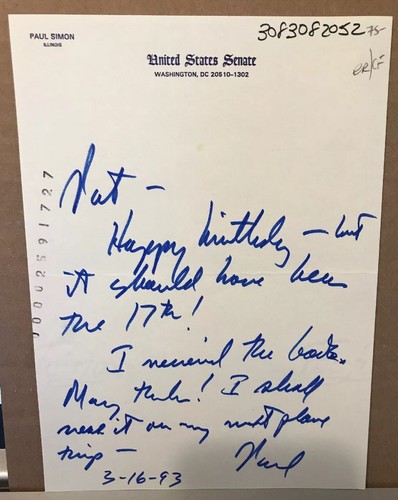 PAUL SIMON
ILLINOIS
3083082052 75-
United States Senate
WASHINGTON, DC 20510-1302
Pat —
Happy birthday — but
it should have been
the 17th!
I received the book.
Many thanks! I shall
read it on my next plane
trip —
Paul
3-16-93
00002591727